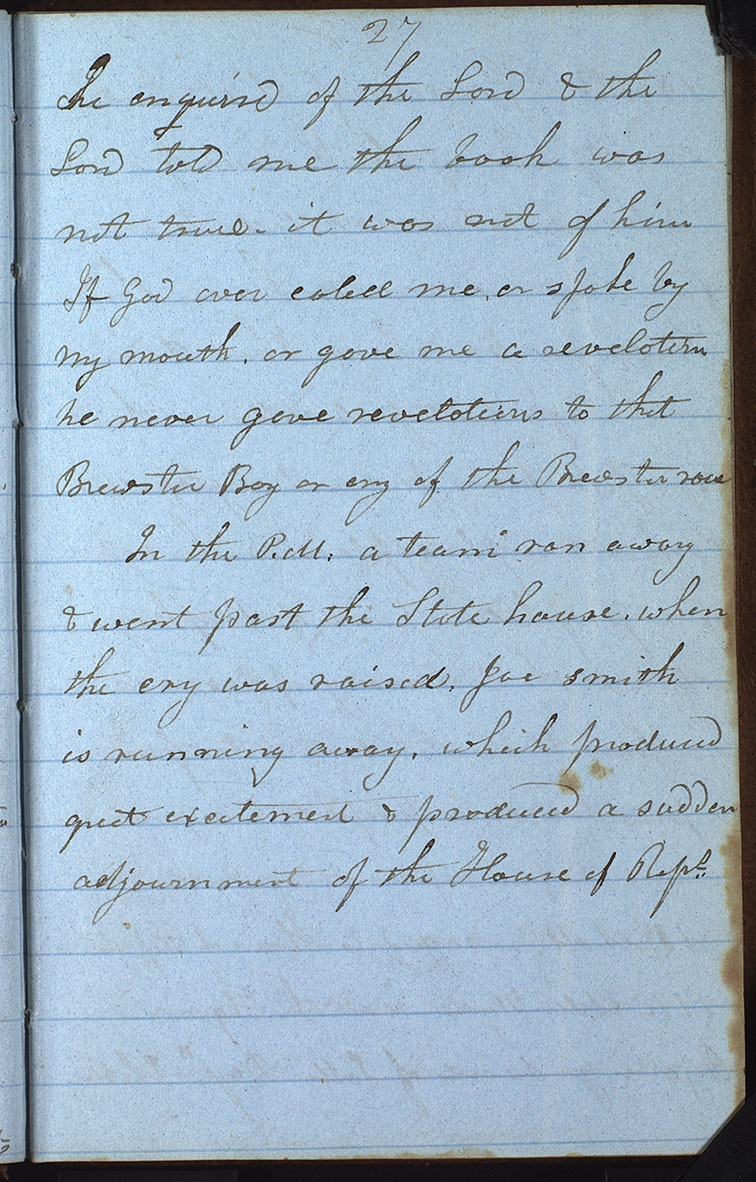 27
I he enquired of the Lord & the
Lord told me the book was
not true. it was not of him
If God ever called me, or spake by
my mouth. or gave me a revelation
he never gave revelations to that
Brewster Boy or any of the Brewster race
In the P.M. a team ran away
& went past the State house. when
the cry was raised, Joe smith
is running away, which produced
great excitement & produced a sudden
adjournment of the House of Reps.